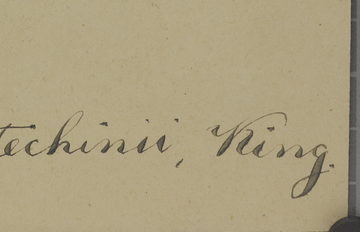 techinii, King.